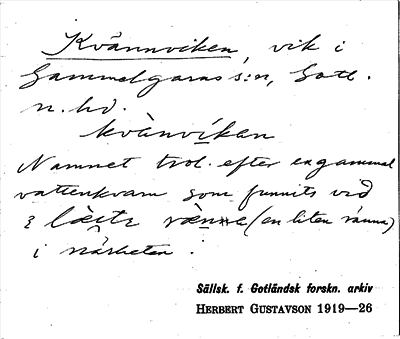 Kvännviken, vik i
Gammelgarns s:n, Gotl.
n. hd.
kvànvíken
Namnet trol. efter en gammal
vattenkvarn som funnits vid
læitr rænne (en liten ränna)
i närheten.
Sällsk. f. Gotländsk forskn. arkiv
HERBERT GUSTAVSON 1919—26